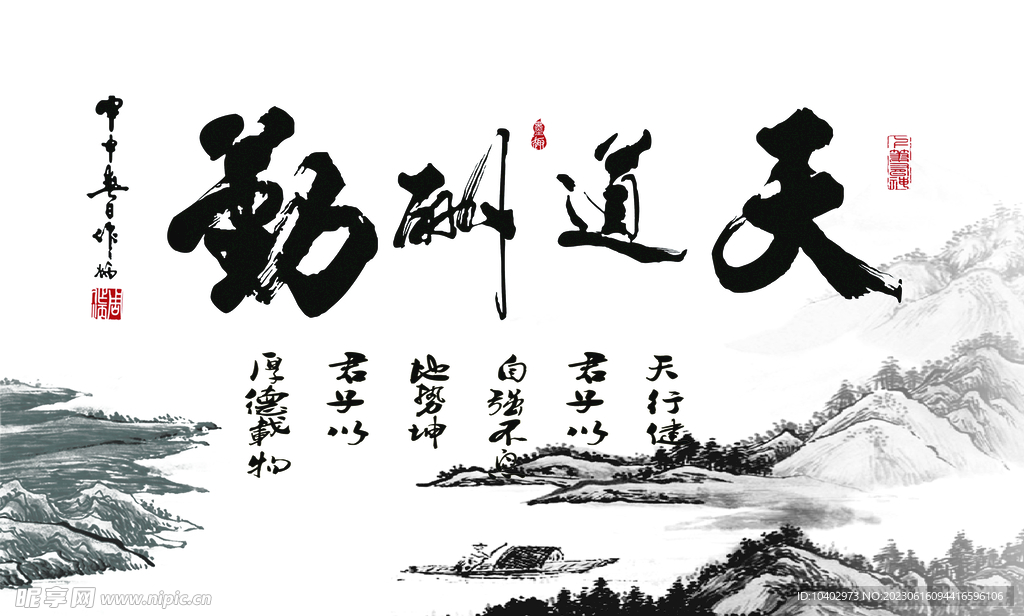 天道酬勤
天行健
君子以
自强不息
地势坤
君子以
厚德載物
昵享网 www.nipic.cn
ID:10402973 NO:20230616094416596106